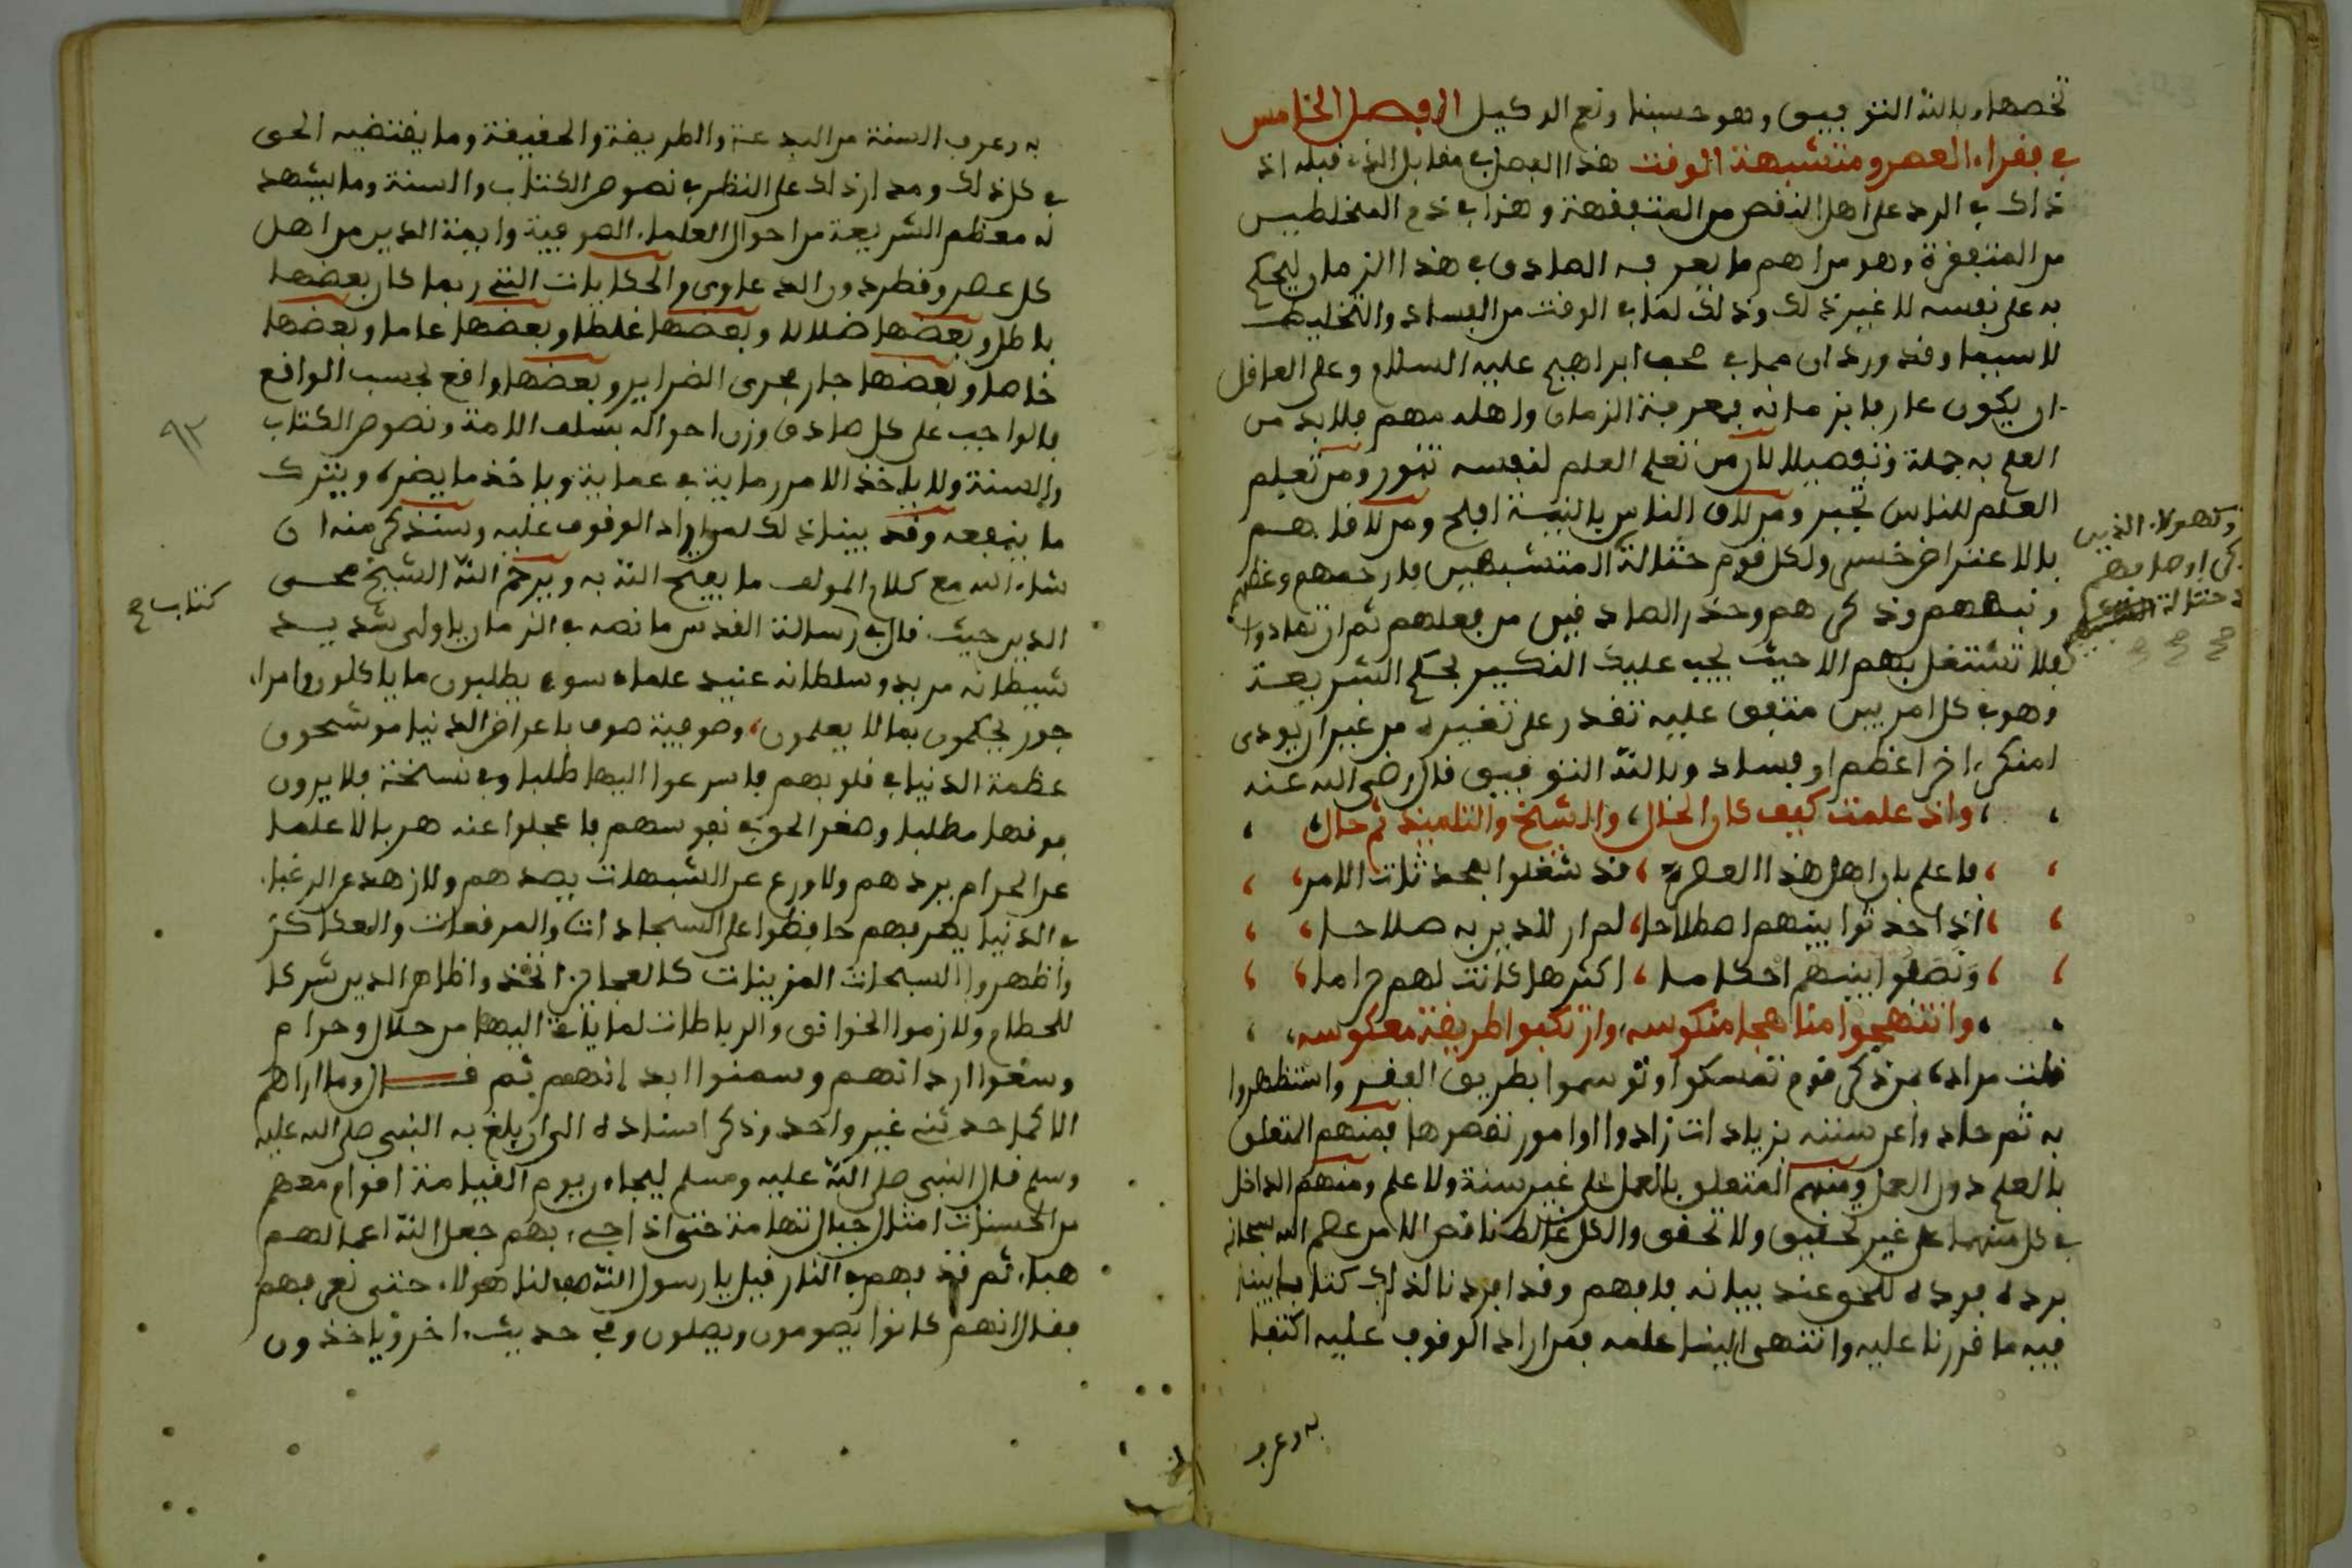 تخصها وبالله التوفيق وهو حسبنا ونعم الوكيل الفصل الخامس
في فقراء العصر ومتشبهة الوقت هذا الفصل في مقابل الذي قبله اذ
ذاك في الرد على اهل النقص من المتفقهة وهذا في ذم المخلطين
من المتفقرة وهو من اهم ما يعرفه الصادق في هذا الزمان ليحكم
به على نفسه لا غير ذلك وذلك لما في الوقت من الفساد والتخليط
لا سيما وقد ورد ان مما في صحف ابراهيم عليه السلام وعلى العاقل
ان يكون عارفا بزمانه فمعرفة الزمان واهله مهم فلا بد من
العلم به جملة وتفصيلا لان من تعلم العلم لنفسه تنور ومن تعلم
العلم للناس تجبر ومن لاقى الناس بالنية افلح ومن لاقاهم
بالاعتراض خسر ولكل قوم حثالة المتشبهين فارحمهم وعظهم
ونبههم وذكرهم وحذر الصادقين من فعلهم ثم ان تمادوا
فلا تشتغل بهم الا حيث يجب عليك النكير بحكم الشريعة
وهو في كل امر بين متفق عليه تقدر على تغييره من غير ان يودى
لمنكر اخر اعظم او فساد وبالله التوفيق قال رضي الله عنه
واذ علمت كيف كان الحال، والشيخ والتلميذ ثم حال
فاعلم بان اهل هذا العصر، قد شغلوا بمحدثات الامر
اذ احدثوا بينهم اصطلاحا، لم ار للدين به صلاحا
ونصبوا بينهم احكاما، اكثرها كانت لهم حراما
وانتهجوا مناهجا منكوسه، وارتكبوا طريقة معكوسه
قلت مراده من ذكر قوم تمسكوا وتوسموا بطريق الفقر واستظهروا
به ثم حادوا عن سننه بزيادات زادوا او امور نقصوها فمنهم المتعلق
بالعلم دون العمل ومنهم المتعلق بالعمل على غير سنة ولا علم ومنهم الداخل
في كل منهما على غير تحقيق ولا تحقق والكل غالط ناقص الا من عصم الله سبحانه
برده فرده للحق عند بيانه فافهم وقد افردنا لذلك كتابا بينا
فيه ما قررنا عليه وانتهى الينا علمه فمن اراد الوقوف عليه اكتفا
به وعرف
وكهولاء الذين
حثالة
به وعرف السنة من البدعة والطريقة والحقيقة وما يقتضيه الحق
في كل ذلك ومدار ذلك على النظر في نصوص الكتاب والسنة وما يشهد
له معظم الشريعة من احوال العلماء الصوفية وايمة الدين من اهل
كل عصر وقطر دون الدعاوى والحكايات التي ربما كان بعضها
باطل وبعضها ضلالا وبعضها غلطا وبعضها عاما وبعضها
خاصا وبعضها جار مجرى الضراير وبعضها واقع بحسب الواقع
فالواجب على كل صادق وزن احواله بسلف الامة ونصوص الكتاب
والسنة ولا ياخذ الامر رماية في عماية وياخذ ما يضره ويترك
ما ينفعه وقد بينا ذلك لمن اراد الوقوف عليه وسنذكر منه ان
شاء الله مع كلام المولف ما يفتح الله به ويرحم الله الشيخ محي
الدين حيث قال في رسالة القدس ما نصه في الزمان يا ولي شديد
شيطانه مريد وسلطانه عنيد علماء سوء يطلبون ما ياكلون وامراء
جور يحكمون بما لا يعلمون، وصوفية صوف باعراض الدنيا موشحون
عظمة الدنيا في قلوبهم فاسرعوا اليها طلبا وفي نسخة فلا يرون
فوقها مطلبا وصغر الحق في نفوسهم فاعجلوا عنه هربا لا علما
عن الحرام يردهم ولا ورع عن الشبهات يصدهم ولا زهد عن الرغبا
في الدنيا يصرفهم حافظوا على السجادات والمرقعات والعكاكز
واظهروا السبحات المزينات كالعجائز اتخذوا ظاهر الدين شركا
للحطام ولازموا الخوانق والرباطات لما ياتي اليها من حلال وحرام
وسعوا اردانهم وسمنوا ابدانهم ثم قال وما اراهم
الا كما حدثني غير واحد وذكر اسناده الى ان يلغ به النبي صلى الله عليه
وسلم قال النبي صلى الله عليه وسلم ليجاءن يوم القيامة اقوام معهم
من الحسنات امثال جبال تهامة حتى اذا جيء بهم جعل الله اعمالهم
هباء ثم قذفهم في النار قيل يا رسول الله صف لنا هولاء حتى نعرفهم
فقال انهم كانوا يصومون ويصلون وفي حديث اخر وياخذون
٩٣
كتاب ع